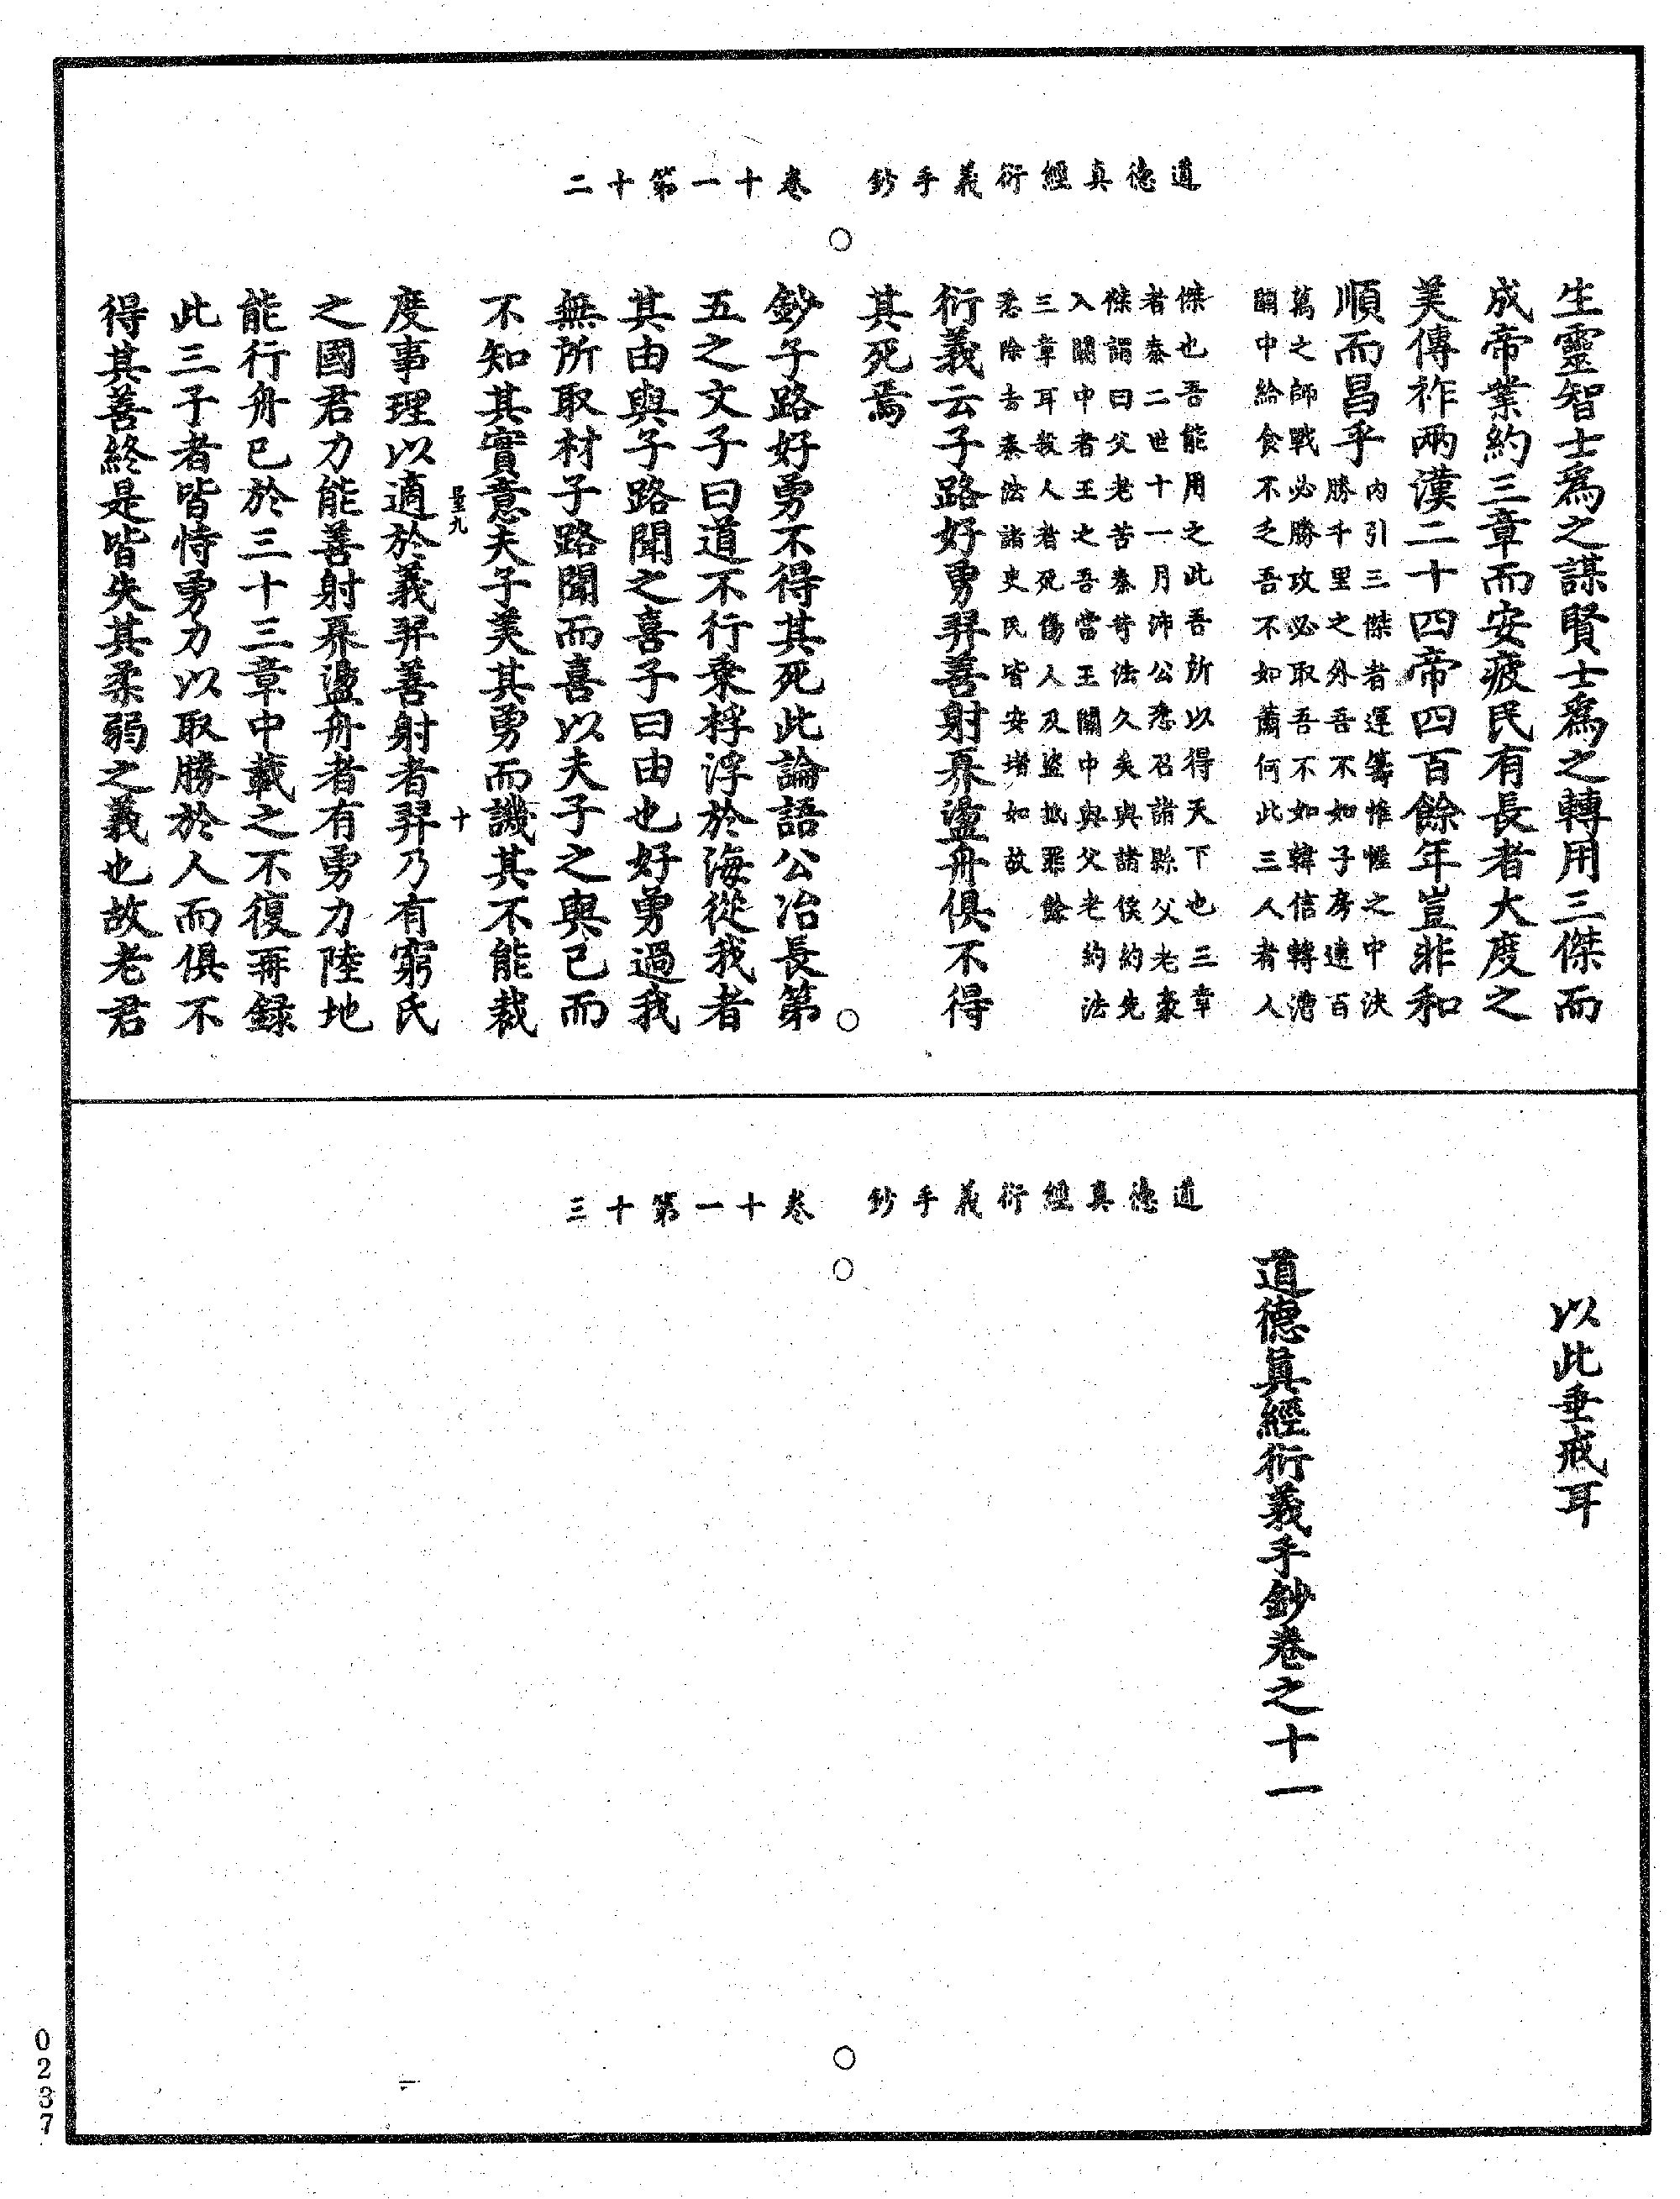 道德真經衍義手鈔 卷十一第十二
生靈智士爲之謀賢士爲之轉用三傑而
成帝業約三章而安疲民有長者大度之
美傳祚兩漢二十四帝四百餘年豈非和
順而昌乎
內引三傑者運籌惟幄之中決
勝千里之外吾不如子房連百
萬之師戰必勝攻必取吾不如韓信轉漕
關中給食不乏吾不如蕭何此三人者人
傑也吾能用之此吾所以得天下也三章
者秦二世十一月沛公悉召諸縣父老豪
傑謂曰父老苦秦苛法久矣與諸侯約先
入關中者王之吾當王關中與父老約法
三章耳殺人者死傷人及盜抵罪餘
悉除去秦法諸吏民皆安堵如故
衍義云子路好勇羿善射奡盪舟俱不得
其死焉
鈔子路好勇不得其死此論語公冶長第
五之文子曰道不行乘桴浮於海從我者
其由與子路聞之喜子曰由也好勇過我
無所取材子路聞而喜以夫子之與己而
不知其實意夫子美其勇而譏其不能裁
量九
十
度事理以適於義羿善射者羿乃有窮氏
之國君力能善射奡盪舟者有勇力陸地
能行舟已於三十三章中載之不復再録
此三子者皆恃勇力以取勝於人而俱不
得其善終是皆失其柔弱之義也故老君
道德真經衍義手鈔 卷十一第十三
以此垂戒耳
道德真經衍義手鈔卷之十一
0237